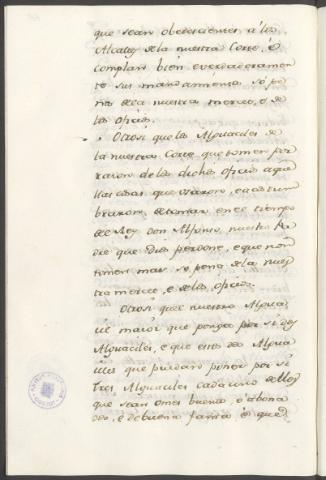 que sean obedescientes á los
Alcalles de la nuestra Corte, é
complan bien everdaderamen
te sus mandamientos só pe
na de la nuestra merced, e de
los oficios.
Otrosi que los Alguaciles de
la nuestra Corte que tomen por
razon de los dichos oficios aque
llas cosas que usaron, eacostum
braron, detomar en el tiempo
del Rey don Alfonso, nuestro Pa
dre que Dios perdone, e que non
tomen mas so pena de la nues
tra merced, e de los oficios.
Otrosi quel nuestro Algua
cil maior que ponga por si dos
Alguaciles, e que estos dos Algua
ciles que puedan poner por si
tres Alguaciles cada uno dellos
que sean omes buenos, é abona
dos, é de buena fama é que